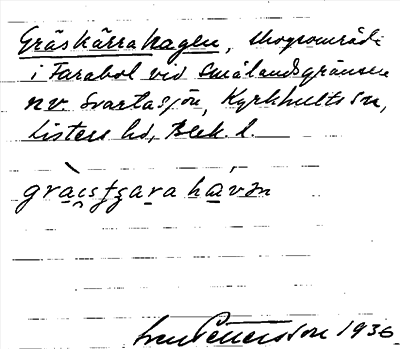 Gräskärrahagen, skogsområde
i Farabol vid Smålandsgränsen
nv Svartasjön, Kyrkhults sn,
Listers hd, Blek. l.
Sven Pettersson 1936